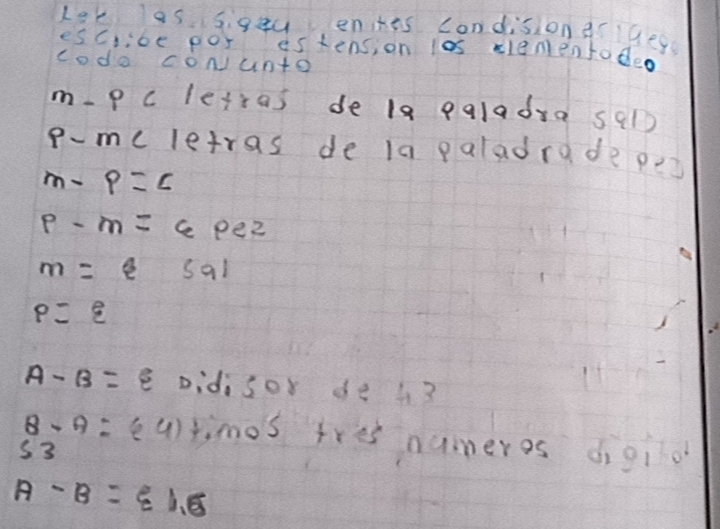 Lee las siguy entes condisiones luego
escribe por estension los elementodeo
codo conunto
m-p c letras de la paladra sal)
p-m c letras de la paladra de pez
m-p=c
p-m= c pez
m= { sal
p= {
A-B= { Didisor de 4?
B-A= { ultimos tres numeros digito
s3
A-B= { 1,8